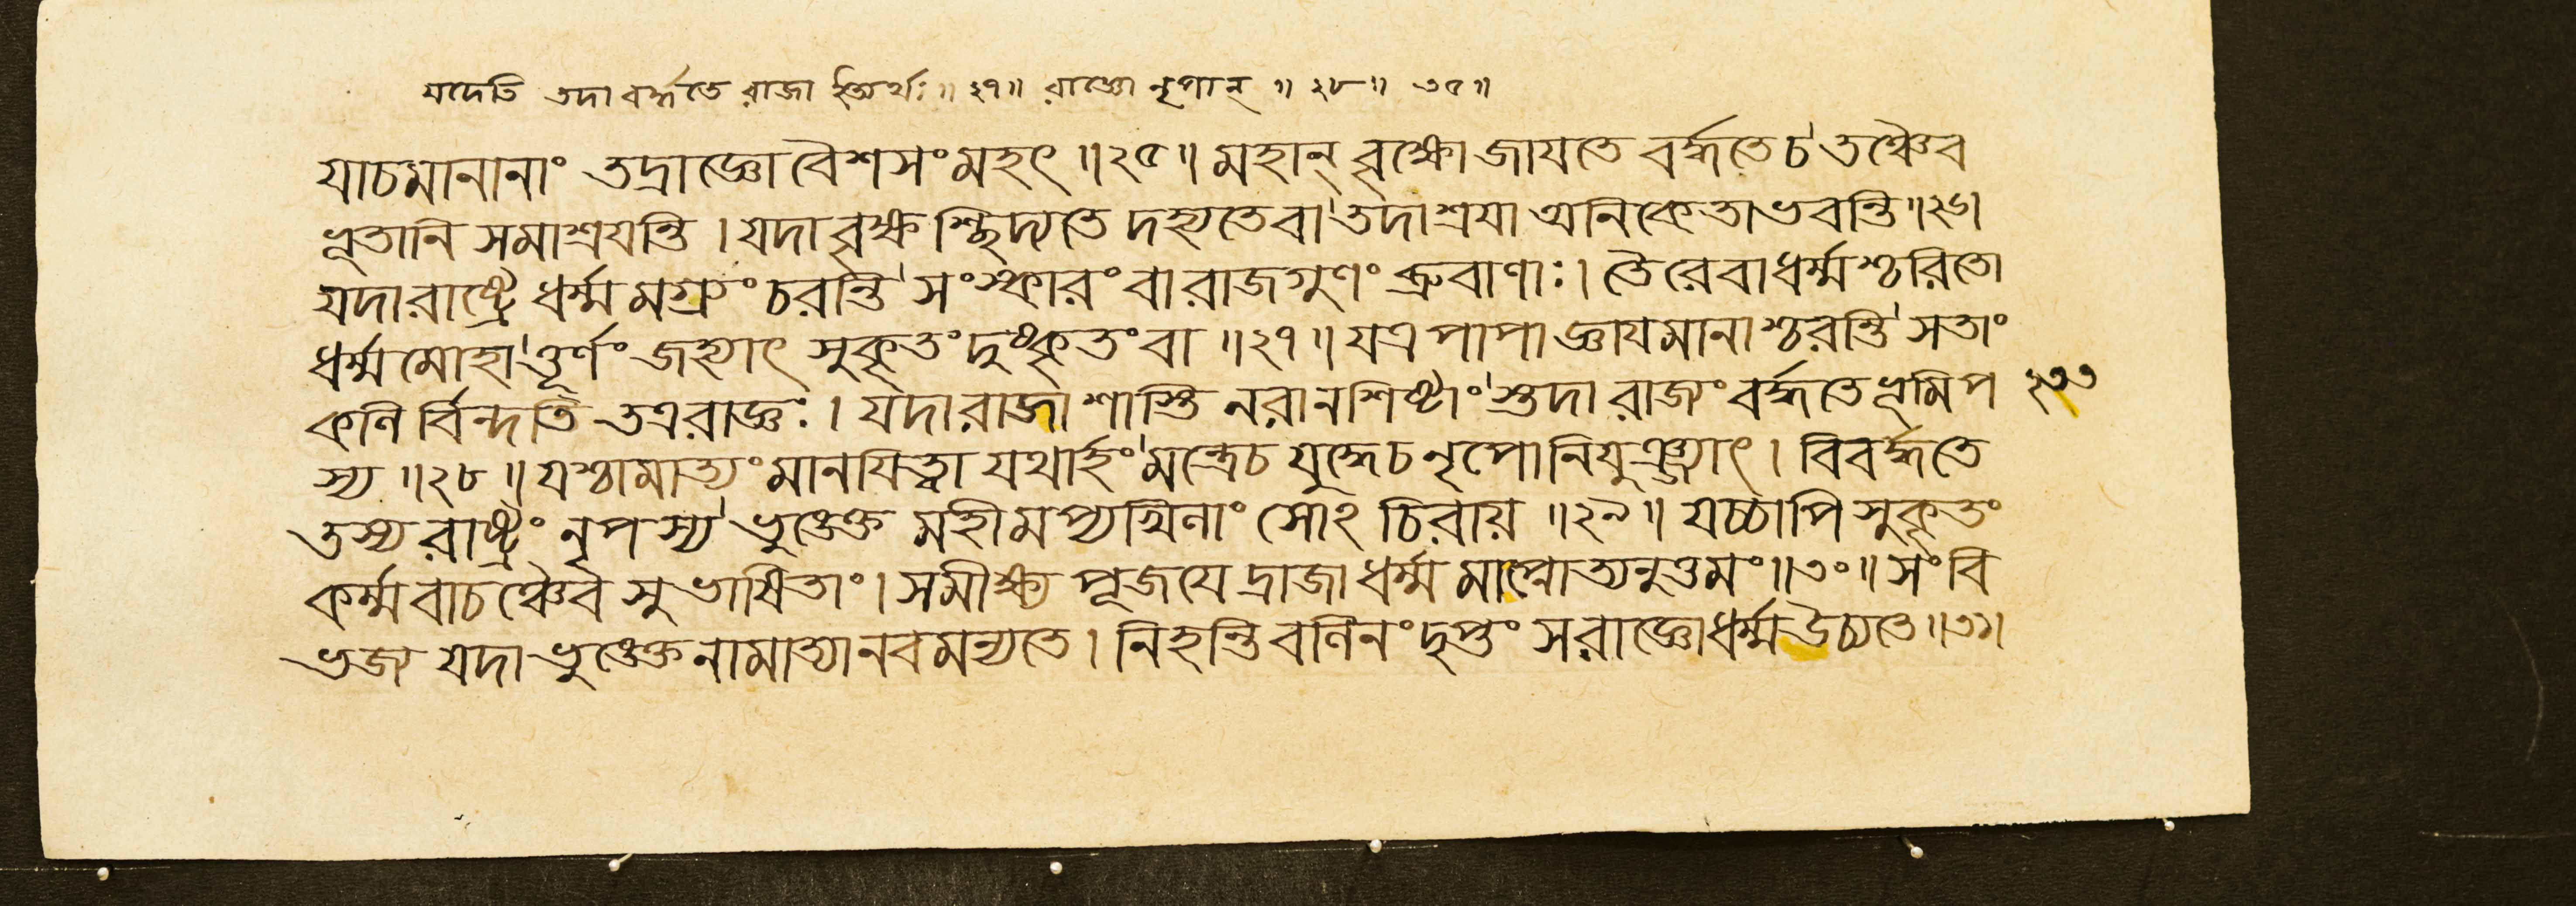 যদেতি তদা বর্দ্ধতে রাজা ইত্যর্থঃ ॥ ২৭ ॥ রাজ্ঞো নৃপান্ ॥ ২৮ ॥ ৩৫ ॥
যাচমানানাং তদ্রাজ্ঞো বৈশসংমহৎ ॥ ২৫ ॥ মহান্ বৃক্ষো জাযতে বর্দ্ধতেচ' তঞ্চৈব
ভূতানি সমাশ্রযন্তি । যদা বৃক্ষ শ্ছিদ্যতে দহ্যতেবা' তদাশ্রযা অনিকেতাভবন্তি ॥ ২৬ ।
যদারাষ্ট্রে ধর্ম্ম মগ্র্যং চরন্তি' সংস্কারং বা রাজগুণং ব্রুবাণাঃ । তৈরেবাধর্ম্মশ্চরিতো
ধর্ম্ম মোহা'ত্তূর্ণং জহ্যাৎ সুকৃতং দুষ্কৃতং বা ॥ ২৭ ॥ যত্র পাপা জ্ঞাযমানাশ্চরন্তি' সতাং
কলি র্বিন্দতি তত্ররাজ্ঞঃ । যদা রাজা শাস্তি নরানশিষ্টাং'স্তদা রাজ্যং বর্দ্ধতে ভূমিপ ২৩৩
স্য ॥ ২৮ ॥ যশ্চামাত্যং মানযিত্বা যথার্হং' মন্ত্রেচ যুদ্ধেচ নৃপো নিযুঞ্জ্যাৎ । বিবর্দ্ধতে
তস্য রাষ্ট্রং নৃপস্য' ভুঙ্ক্তে মহীমপ্যখিলাং সোঽ চিরায় ॥ ২৯ ॥ যচ্চাপি সুকৃতং
কর্ম্ম বাচঞ্চৈব সুভাষিতাং । সমীক্ষ্য পূজযে দ্রাজা ধর্ম্ম মাপ্নোত্যনুত্তমং ॥ ৩০ ॥ সংবি
ভজ্য যদা ভুঙ্ক্তে নামাত্যানবমন্যতে । নিহন্তি বলিনং দৃপ্তং স রাজ্ঞো ধর্ম্ম উচ্যতে ॥ ৩১ ।